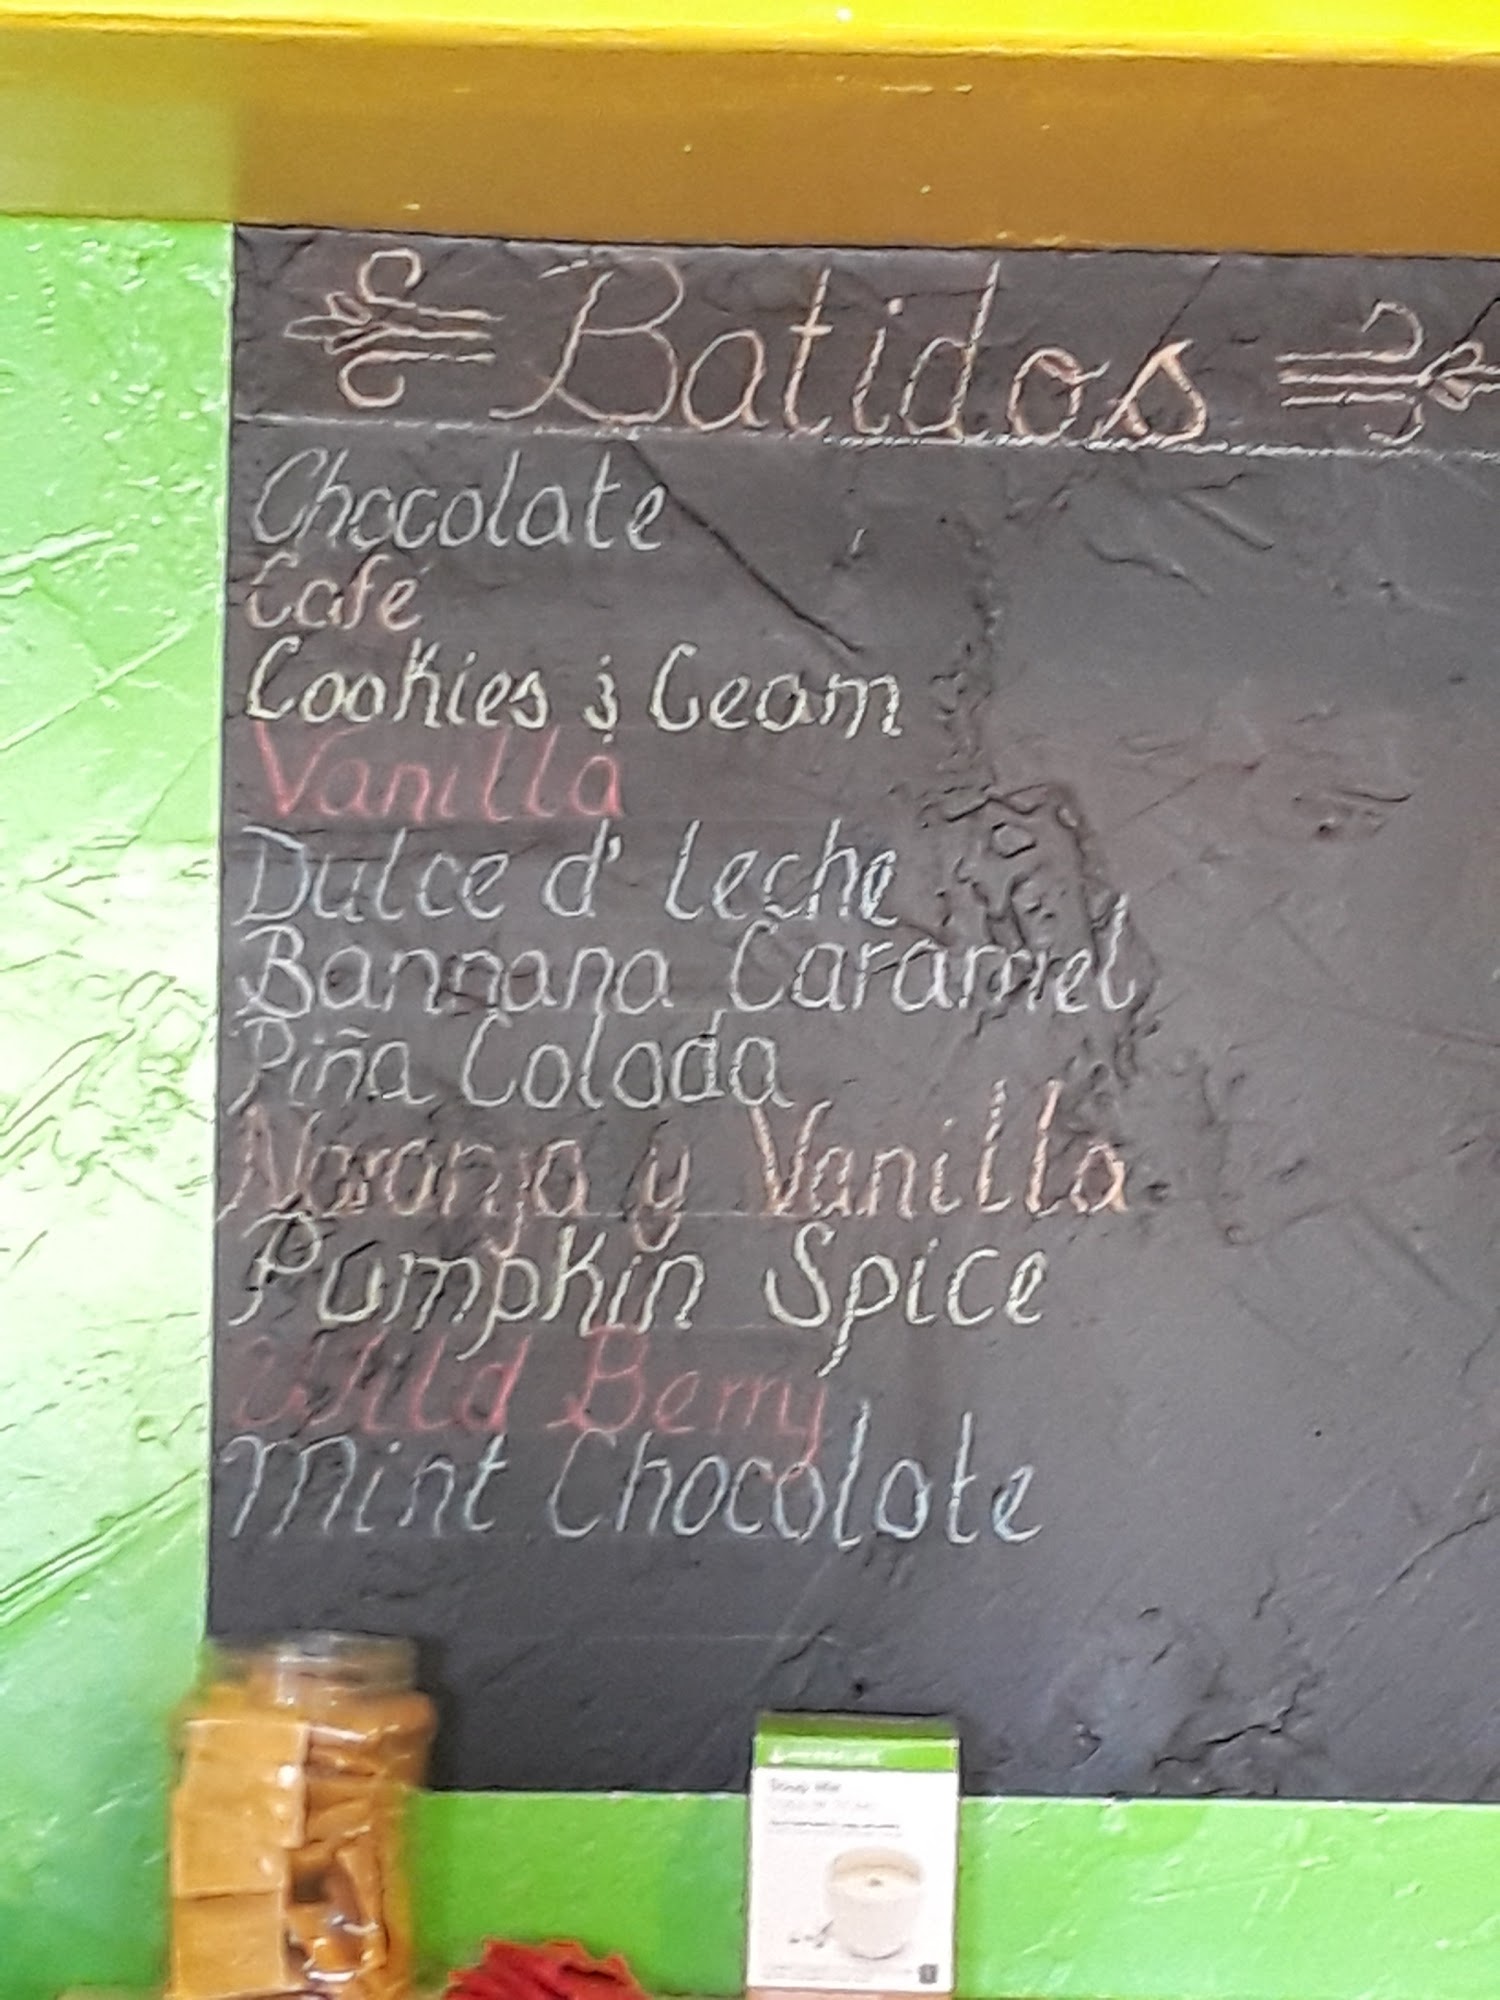 Batidos
Chocolate
Café
Cookies & Ceam
Vanilla
Dulce d' Leche
Bannana Caramel
Piña Colada
Naranja y Vanilla
Pumpkin Spice
Wild Berry
Mint Chocolate
HERBALIFE
Soup Mix